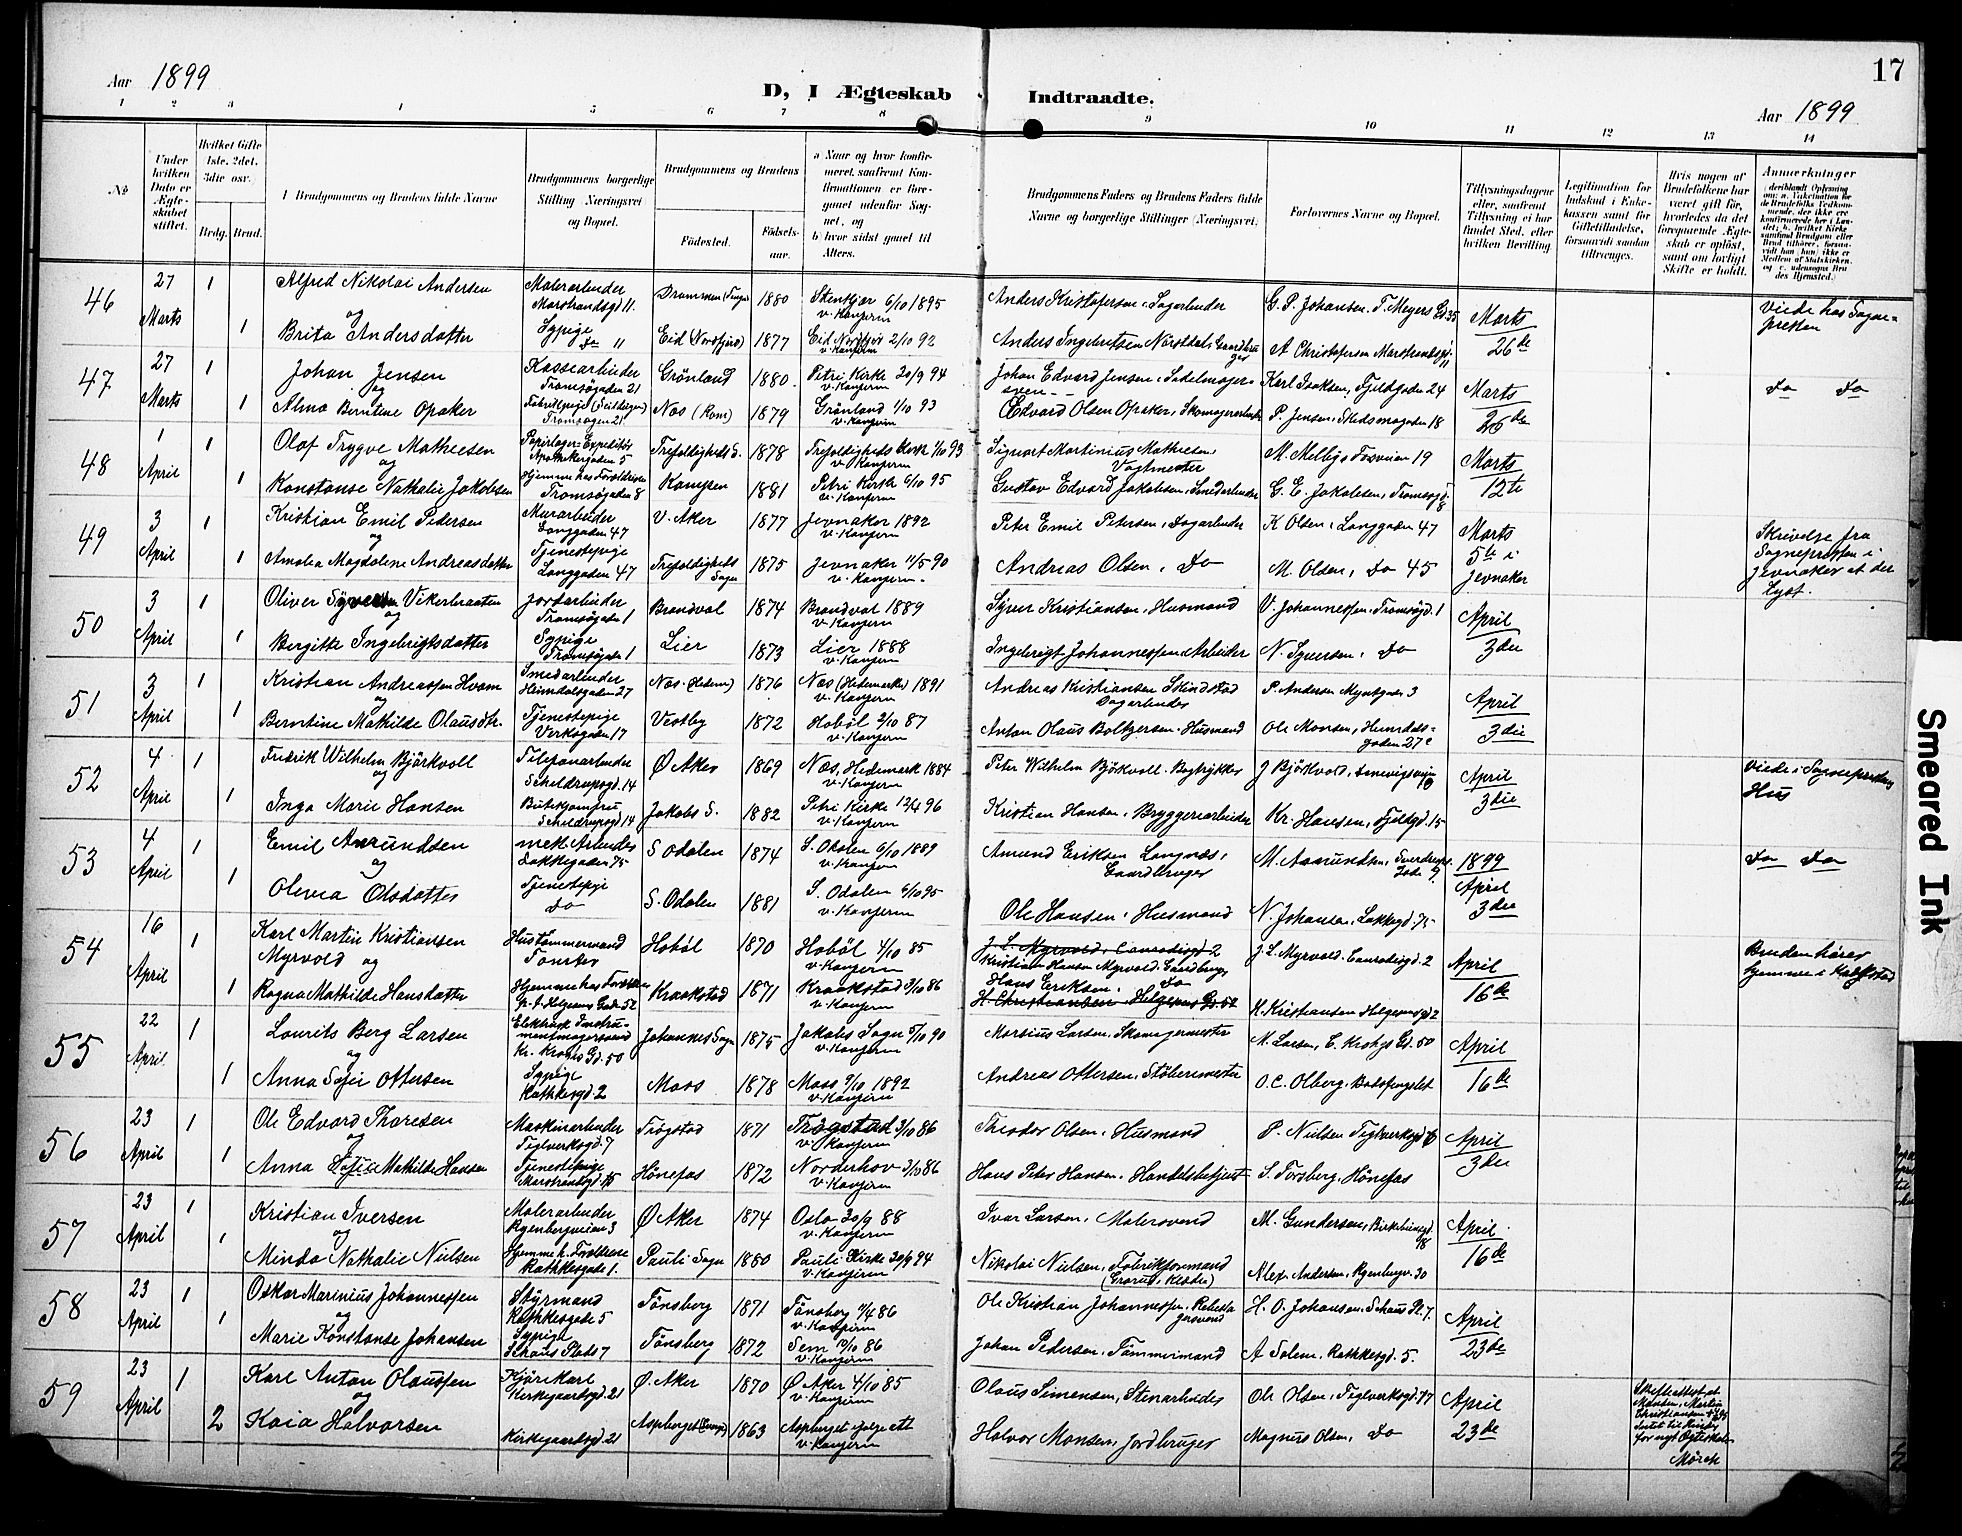 Aar 1899
D, I Ægteskab Indtraadte.
17
Aar 1899
1 2 3 4 5 6 7 8 9 10 11 12 13 14
No
Under hvilken Dato er Ægteskabet stiftet.
Hvilket Gifte 1ste. 2det. 3die osv.
Brdg. Brud.
Brudgommens og Brudens fulde Navne
Brudgommens borgerlige Stilling (Næringsvei) og Bopæl.
Brudgommens og Brudens
Fødested.
Fødselsaar.
a Naar og hvor konfirmeret, saafremt Konfirmationen er foregaaet udenfor Sognet, og
b) hvor sidst gaaet til Alters.
Brudgommens Faders og Brudens Faders fulde Navne og borgerlige Stillinger (Næringsvei.
Forlovernes Navne og Bopæl.
Tillysningsdagene eller, saafremt Tillysning ei har fundet Sted, efter hvilken Bevilling.
Legitimation for Indskud i Enkekassen samt for Giftetilladelse, forsaavidt saadan tiltrænges.
Hvis nogen af Brudefolkene har været gift før, hvorledes da det foregaaende Ægteskab er opløst, samt om lovligt Skifte er holdt.
Anmærkninger
46 27 Marts 1 Alfred Nikolai Andersen Malerarbeider Marstrandsgd 11. Drammen 1880 Stenkjær 6/10 1895 v. Konfirm Anders Kristofersen, Dagarbeider G. P. Johansen, T. Meyers Gd. 35 Marts 26de Viede hos Sognepresten
og
1 Brita Andersdatter Sypige do 11 Eid (Nordfjord) 1877 Eid Nordfjord 2/10 92 v. Konfirm Anders Ingebritsen Nordal, Gaardbruger A Christofersen Marstrandsgd. 11
47 27 Marts 1 Johan Jensen Kassearbeider Tromsøgaden 21 Grönland 1880. Petri Kirke 20/9 94 v. Konfirm Johan Edvard Jensen, Sadelmagersvend Karl Isaksen, Fjeldgaden 24 Marts 26de do do
og
1 Alma Berntine Opaker Tromsøgaden 21 Næs (Rom) 1879 Grönland 1/10 93 v. Konfirm Edvard Olsen Opaker, Skomagerarbeider P. Jensen, Hedemagaden 18
48 1 April 1 Olaf Trygve Mathiesen Papirlager-Expeditør Apothekergaden 5 Trefoldigheds S. 1878 Trefoldigheds Kirke 1/10 93 v. Konfirm Sigvart Martinius Mathiesen, Vagtmester M. Mellbye Fosveien 19 Marts 12te
og
1 Konstanse Nathalie Jakobsen Hjemme hos Forældrene Tromsøgaden 8 Kampen 1881 Petri Kirke 6/10 95 v. Konfirm Gustav Edvard Jakobsen, Smedarbeider G. E. Jakobsen, Tromsøgd. 8
49 3 April 1 Kristian Emil Pedersen Murarbeider Langgaden 47 V. Aker 1877 Jevnaker 1892 v. Konfirm Peter Emil Petersen, Dagarbeider K Olsen, Langgaden 47 Marts 5te i Jevnaker Skrivelse fra Sognepresten i Jevnaker at der lyst.
og
1 Amalia Magdalene Andreasdatter Tjenestepige Langgaden 47 Trefoldigheds Sogn 1875 Jevnaker 11/5 90 v. Konfirm. Andreas Olsen, do M. Olsen, do 45
50 3 April 1 Oliver Syversen Vikerbraaten Jordarbeider Tromsøgaden 1 Brandval 1874 Brandval 1889 v. Konfirm Syver Kristiansen, Husmand V. Johannessen, Tromsøgd. 1 April 3die
og
1 Bergitte Ingebrigtsdatter Sypige Tromsøgaden 1 Lier 1873 Lier 1888 v. Konfirm Ingebrigt Johannessen, Arbeider N. Syversen, do
51 3 April 1 Kristian Andreassen Hvam Smedarbeider Heimdalsgaden 27 Næs (Hedem) 1876 Næs (Hedemarken) 1891 v. Konfirm Andreas Kristiansen Skindstad Dagarbeider P. Andersen Myntgaden 3 April 3die
og
1 Berntine Mathilde Olausdtr. Tjenestepige Verksgaden 17 Vestby 1872 Hobøl 2/10 87 v. Konfirm Anton Olaus Boltzersen, Husmand Ole Monsen, Heimdalsgaden 27
52 4 April 1 Fredrik Wilhelm Björkvoll Telefonarbeider Scheldrupsgd. 14 Ø Aker 1869 Næs, Hedemark 1884 v. Konfirm Peter Wilhelm Björkvoll, Bogtrykker J Björkvold April 3die Viede i Sognepresten Hus
og
1 Inga Marie Hansen Butikjomfru Schieldrupsgd 14 Jakobs S. 1882 Petri Kirke 12/4 96 v. Konfirm Kristian Hansen, Bryggeriarbeider Kr. Hansen, Fjeldgd. 15
53 4 April 1 Emil Amundsen mek. Arbeider Lakkegaden 75 S Odalen 1874 S. Odalen 6/10 1889 v. Konfirm Amund Eriksen Langnæs, Gaardbruger M. Aamundsen, Sverdrups Gade 9 1899 April 3die do do
og
1 Olivia Olsdatter Tjenestepige do S. Odalen 1881 S. Odalen 6/10 95 v. Konfirm Ole Hansen, Husmand N. Johansen, Lakkegd. 75
54 16 April 1 Karl Martin Kristiansen Myrvold og Hustømmermand Tonsten Hobøl 1870 Hobøl 4/10 85 v. Konfirm J. L. Myrvold, Conradisgd 2 Kristian Hansen Myrvold, Gaardbruger J. L. Myrvold, Conradisgd. 2 April 16de Bruden hører hjemme i Kraakstad
1 Ragna Mathilde Hansdatter Hjemme hos Forældrene Kraakstad 1871 Kraakstad 3/10 86 v. Konfirm Hans Eriksen, do H. Christiansen H. Kristiansen Helgesensgd 2
55 22 April 1 Lourits Berg Larsen Elektrisk Instrumentmagersvend Kr. Krohgs Gd. 50 Johannes Sogn 1875 Jakobs Sogn 5/10 90 v. Konfirm Marsius Larsen, Skomagermester M. Larsen, C. Krohgs Gd. 50 April 16de
og
1 Anna Sofie Ottersen Sypige Rathkesgd. 2 Moss 1878 Moss 9/10 1892 v. Konfirm Andreas Ottersen, Støbermester O. C. Olberg, Bodsfengslet
56 23 April 1 Ole Edvard Thoresen Maskinarbeider Teglverksgd. 7 Trögstad 1871 Trögstad 3/10 86 v. Konfirm Theodor Olsen, Husmand P. Nielsen Teglverksgd April 3die
og
1 Anna Sofie Mathilde Hansen Tjenestepige Marstrandsgd. 15 Hönefos 1872 Norderhov 3/10 86 v. Konfirm Hans Peter Hansen, Handelsbetjent S. Forsberg, Hönefos
57 23 April 1 Kristian Iversen Malerarbeider Ryenbergveien 3 Ø Aker 1874 Oslo 30/9 88 v. Konfirm Ivar Larsen, Malersvend M. Gundersen, Birkelunsgd. 18 April 16de
og
1 Minda Nathalie Nielsen Hjemme h. Forældrene Rathkesgade 1. Pauli Sogn 1880 Pauli Kirke 30/9 94 v. Konfirm Nikolai Nielsen, Fabrikformand Alex. Andersen, Ryenbergv. 30
58 23 April 1 Oskar Marinius Johannessen Styrmand Rathkesgade 5 Tönsberg 1871 Tönsberg 11/4 86 v. Konfirm Ole Kristian Johannessen, H. O. Johansen, Schous Pl. 7. April 23de
og
1 Marie Konstanse Johansen Sypige Schous Plads 7 Tönsberg 1872 Sem 10/10 86 v. Konfirm Johan Pedersen, Tømmermand A Solem, Rathkesgd. 5.
59 23 April 1 Karl Anton Olaussen Kjørekarl Kirkegaardsgd. 21 Ø. Aker 1870 Ø Aker 4/10 85 v. Konfirm Olaus Simensen, Stenarbeider Ole Olsen, Teglverksgd. 17 April 23de
og
2 Kaia Halvorsen Kirkegaardsgd. 21 Aspberget 1863 Aspberget ifølge att v. Konfirm Halvor Monsen, Jordbruger Magnus Olsen, do for nyt Ægteskab Mørch
Smeared Ink